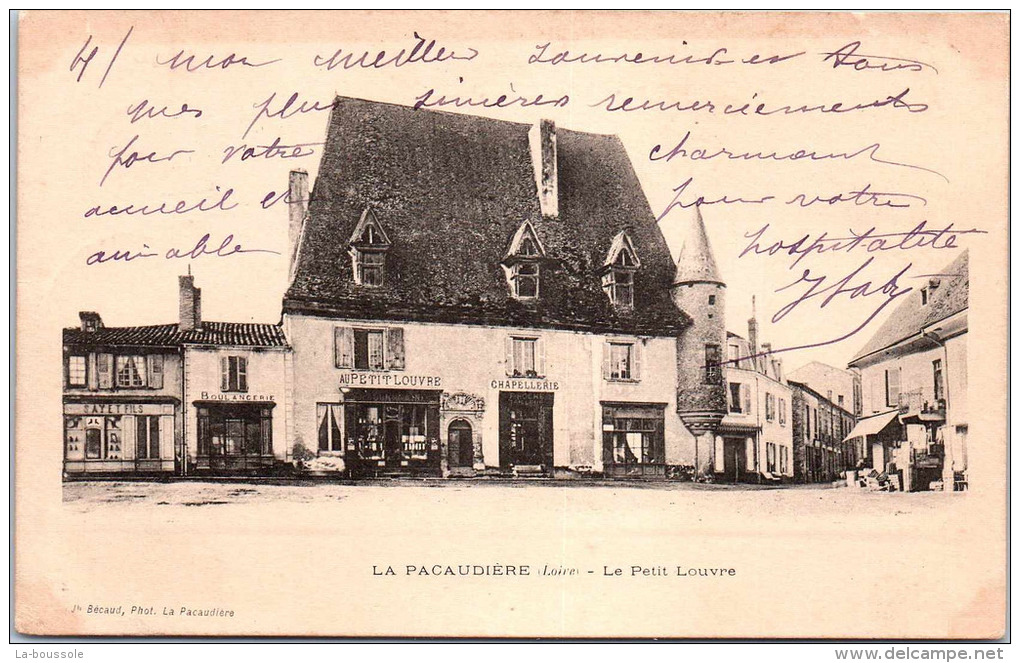 4/ mon meilleur souvenir et tous
mes plus sincères remerciements
pour votre charmant
accueil et pour votre
aimable hospitalité
AU PETIT LOUVRE
CHAPELLERIE
BOULANGERIE
SAYET FILS
LA PACAUDIÈRE (Loire) - Le Petit Louvre
Jh Bécaud, Phot. La Pacaudière
La-boussole
http://www.delcampe.net